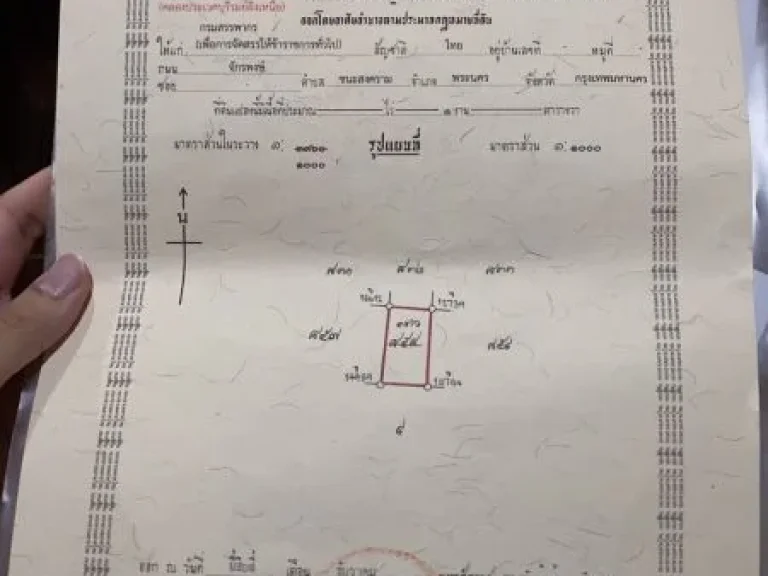 (คลองประเวศบุรีรมย์ฝั่งเหนือ)
ออกโดยอาศัยอำนาจตามประมวลกฎหมายที่ดิน
กรมสรรพากร
ให้แก่ (เพื่อการจัดสรรให้ข้าราชการทั่วไป) สัญชาติ ไทย อยู่บ้านเลขที่ หมู่ที่
ถนน จักรพงษ์
ซอย ตำบล ชนะสงคราม อำเภอ พระนคร จังหวัด กรุงเทพมหานคร
ที่ดินแปลงนี้มีเนื้อที่ประมาณ ไร่ ๑ งาน ตารางวา
มาตราส่วนในระวาง ๑: รูปแผนที่ มาตราส่วน ๑: ๑๐๐๐
๑๐๐๐
น
๘๕๗ ๘๕๕
ออก ณ วันที่ ยี่สิบสี่ เดือน ธันวาคม